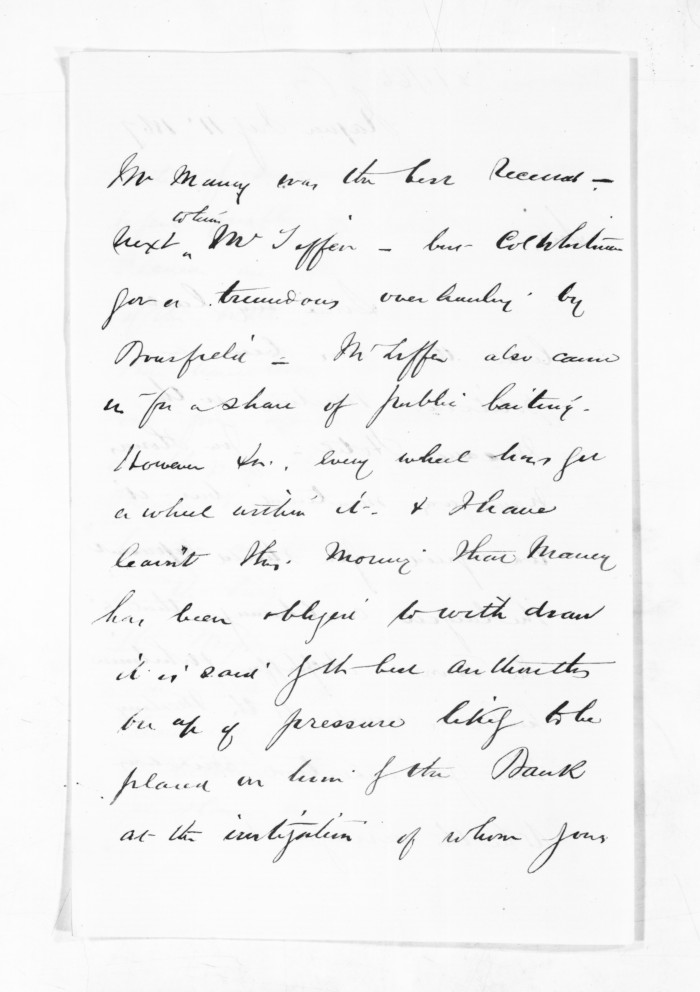 Mr Maney was the best received -
next to him Mr Tiffen - but Col Whitmore
got a tremendous overhauling by
Bousfield - Mr Tiffen also came
in for a share of public baiting.
However Sir, every wheel has got
a wheel within it - & I have
learnt this morning that Maney
has been obliged to withdraw
it is said by the best authorities
on a/c of pressure likely to be
placed on him by the Bank
at the instigation of whom your